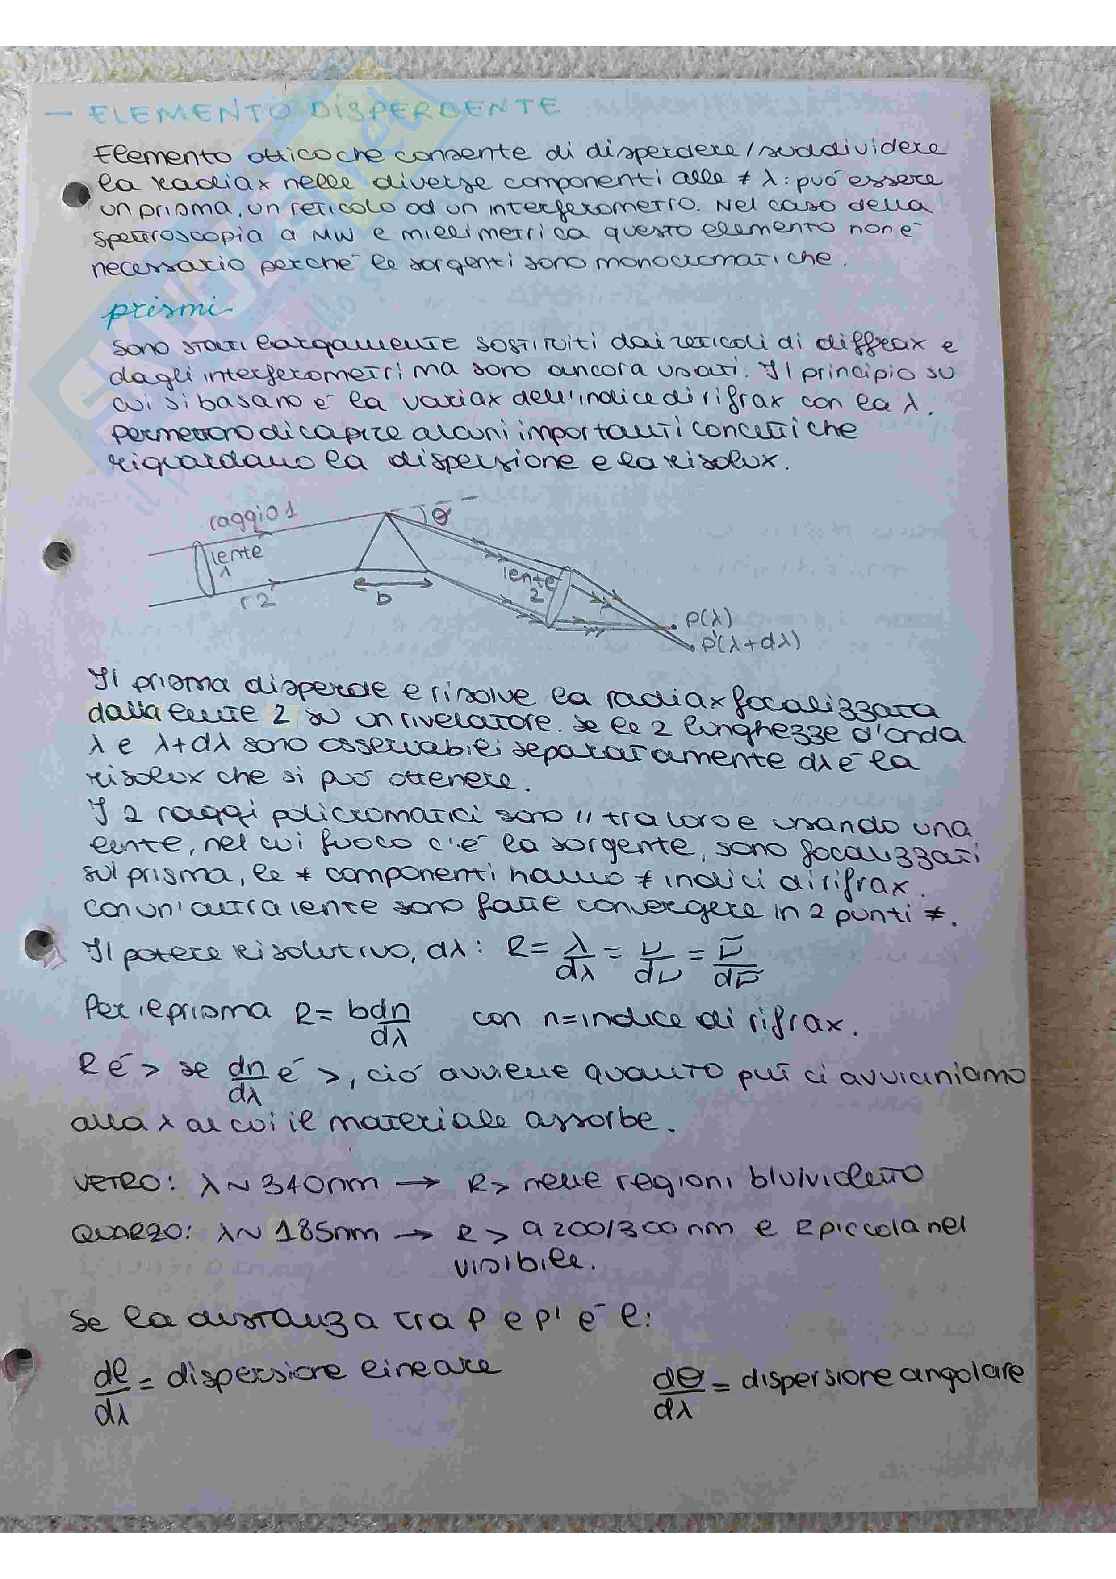 - ELEMENTO DISPERDENTE
Elemento ottico che consente di disperdere/suddividere
la radiax nelle diverse componenti alle ≠ λ: può essere
un prisma, un reticolo od un interferometro. Nel caso della
spettroscopia a MW e millimetrica questo elemento non è
necessario perchè le sorgenti sono monocromatiche.
prismi
sono stati largamente sostituiti dai reticoli di diffrax e
dagli interferometri ma sono ancora usati. Il principio su
cui si basano è la variax dell'indice di rifrax con la λ.
Permettono di capire alcuni importanti concetti che
riguardano la dispersione e la risolux.
raggio 1
θ
lente
1
r2
b
lente
2
P(λ)
P'(λ+dλ)
Il prisma disperde e risolve la radiax focalizzata
dalla lente 2 su un rivelatore. Se le 2 lunghezze d'onda
λ e λ+dλ sono osservabili separatamente dλ è la
risolux che si può ottenere.
I 2 raggi policromatici sono // tra loro e usando una
lente, nel cui fuoco c'è la sorgente, sono focalizzati
sul prisma, le ≠ componenti hanno ≠ indici di rifrax.
Con un'altra lente sono fatte convergere in 2 punti ≠.
Il potere risolutivo, dλ: R = λ/dλ = ν/dν = ν̃/dν̃
Per il prisma R = b dn/dλ con n = indice di rifrax.
R è > se dn/dλ è >, ciò avviene quanto più ci avviciniamo
alla λ al cui il materiale assorbe.
VETRO: λ ~ 340nm → R > nelle regioni blu/violetto
QUARZO: λ ~ 185nm → R > a 200/300 nm e R piccola nel
visibile.
Se la distanza tra P e P' è l:
dl/dλ = dispersione lineare dθ/dλ = dispersione angolare